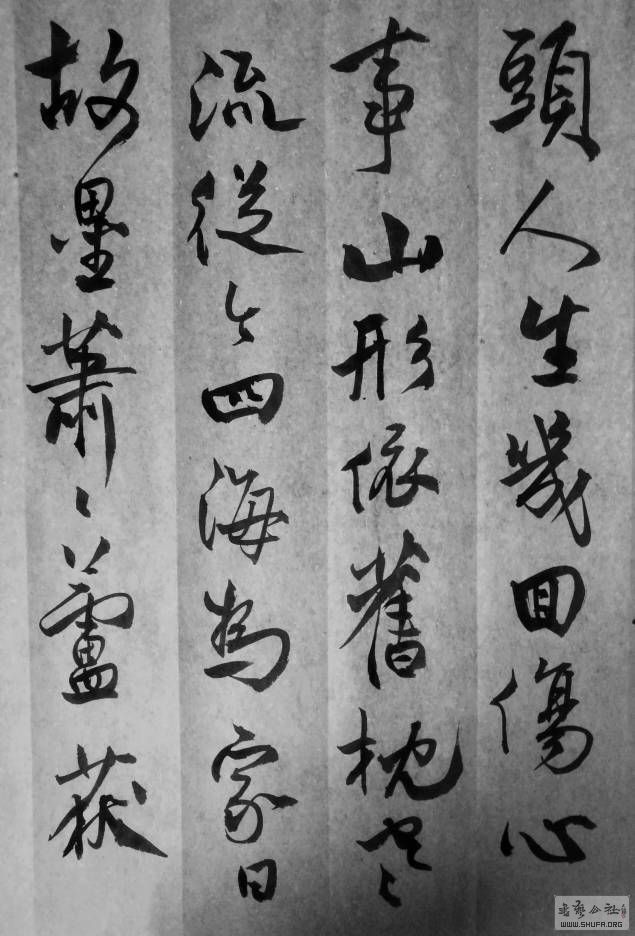 頭人生幾回傷心
事山形依舊枕寒
流從今四海為家日
故壘蕭〻蘆荻
书艺公社
WWW.SHUFA.ORG